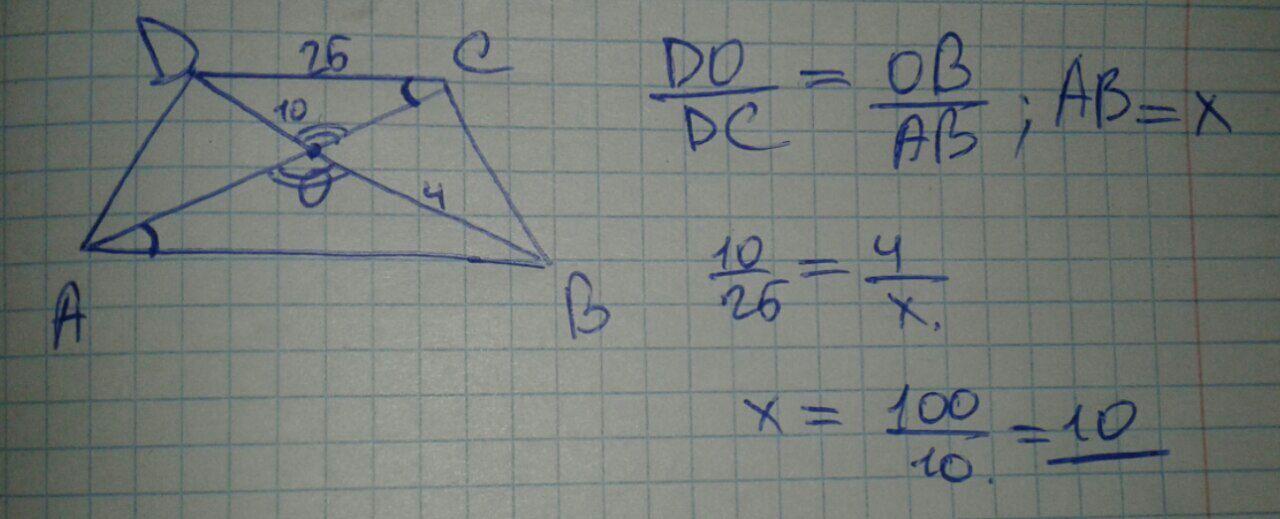 D 25 C
10
O 4
A B
DO/DC = OB/AB ; AB = x
10/25 = 4/x.
x = 100/10. = 10